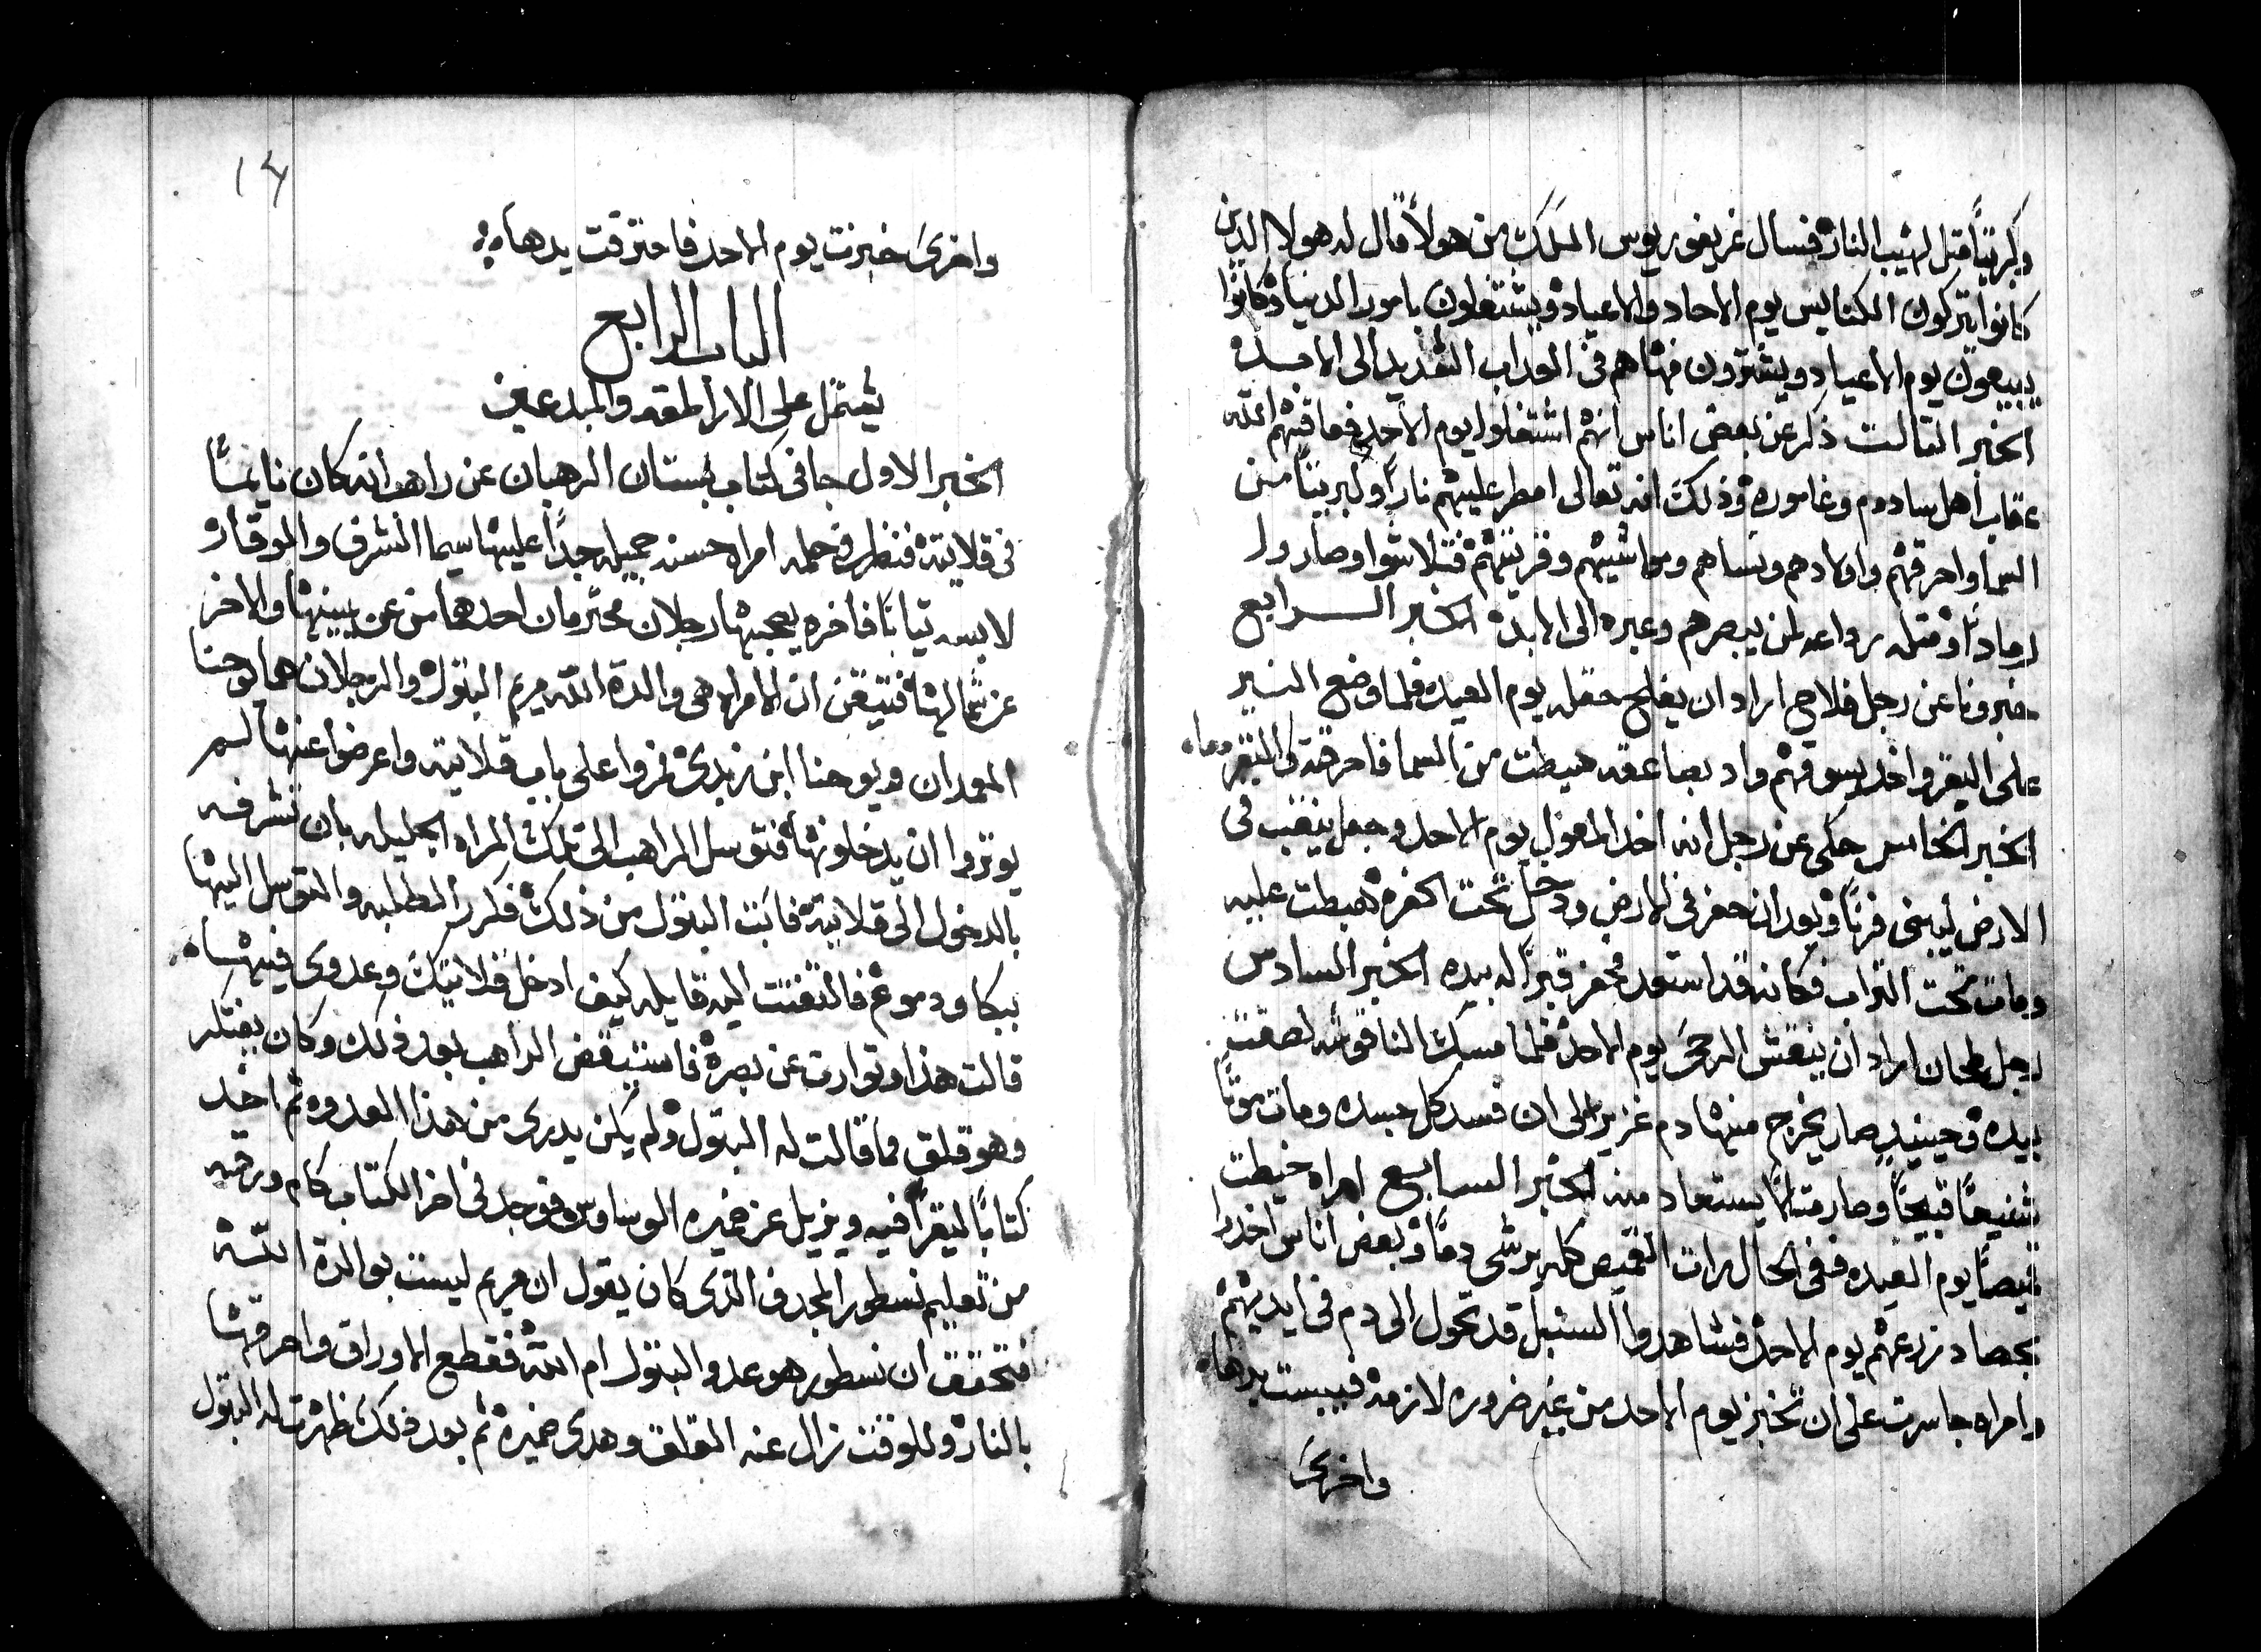 وكبريتًا مثل لهيب النار فسال غريغوريوس الملاك من هولا قال له هولا الدين
كانوا يتركون الكنايس يوم الاحاد والاعياد ويشتغلون بامور الدنيا وكانوا
يبيعون يوم الاعياد ويشترون فها هم فى العداب الشديد الى الابد
الخبر التالت ذكر عن بعض اناس انهم اشتغلوا يوم الاحد فعاقبهم الله
عقاب اهل سادوم وغاموره وذلك انه تعالى امطر عليهم نارًا وكبريتًا من
السما واحرقهم واولادهم ونساهم ومواشيهم وقريتهم فتلاشوا وصاروا
رمادًا ومتله رواعه لمن يبصرهم وعبره الى الابد الخبر الرابع
خبرونا عن رجل فلاح اراد ان يفلح حقله يوم العيد فلما وضع النير
على البقر واخد يسوقهم واد بصاعقه هبطت من السما فاحرقته والبقر معاه
الخبر الخامس حكى عن رجل انه اخد المعول يوم الاحد وجعل ينقب فى
الارض ليبنى فرنًا وبعد ان حفر فى الارض ودخل تحت الحفره هبطت عليه
ومات تحت التراب فكانه قد استعد فحفر قبرًا له بيده الخبر السادس
رجل طحان اراد ان ينقش الرحى يوم الاحد فلما مسك الناقوشه لصقت
بيده وحينيدٍ صار يخرج منها دم غزير الى ان فسد كل جسده ومات موتًا
شنيعًا قبيحًا وصار متالًا يستعاد منه الخبر السابع امراه خيطت
قميصًا يوم العيد ففى الحال رات القميص كله يرشى دمًا وبعض اناس اخدوا
بحصاد زرعهم يوم الاحد فشاهدوا السنبل قد تحول الى دم فى ايديهم
وامراه جاسرت على ان تخبز يوم الاحد من غير ضروره لازمه فيبست يدها
واخرى
١٤
واخرى خبزت يوم الاحد فاحترقت يدها
الباب الرابع
يشتمل على الارا طقه والمبدعين
الخبر الاول جا فى كتاب بستان الرهبان عن راهب انه كان نايمًا
فى قلايته فنظر فى حلمه امراه حسنه جميله جدًا عليها سيما الشرف والوقار
لابسه تيابًا فاخره يصحبها رجلان محترمان احدهما من عن يمينها والاخر
عن شمالها فتيقن ان الامراه هى والدة الله مريم البتول والرجلان هما يوحنا
المعمدان ويوحنا ابن زبدى فمروا على باب قلايته واعرضوا عنها لم
يوتروا ان يدخلونها فتوسل الراهب الى تلك المراه الجليله بان تشرفه
بالدخول الى قلايته فابت البتول من ذلك فكرر الطلبه والتوسل اليها
ببكا ودموع فالتفتت اليه قايله كيف ادخل قلايتك وعدوى فيها
قالت هذا وتوارت عن بصره فاستيقض الراهب بعد ذلك وكان يفتكر
وهو قلق مما قالت له البتول ولم يكن يدرى من هذا العدو ثم اخد
كتابًا ليقرا فيه ويزيل عن ضميره الوساوس فوجد فى اخر الكتاب كام ورقه
من تعليم نسطور المجدف الذى كان يقول ان مريم ليست بوالدة الله
فتحقق ان نسطور هو عدو البتول ام الله فقطع الاوراق واحرقها
بالنار وللوقت زال عنه القلق وهدى ضميره ثم بعد ذلك ظهرت له البتول